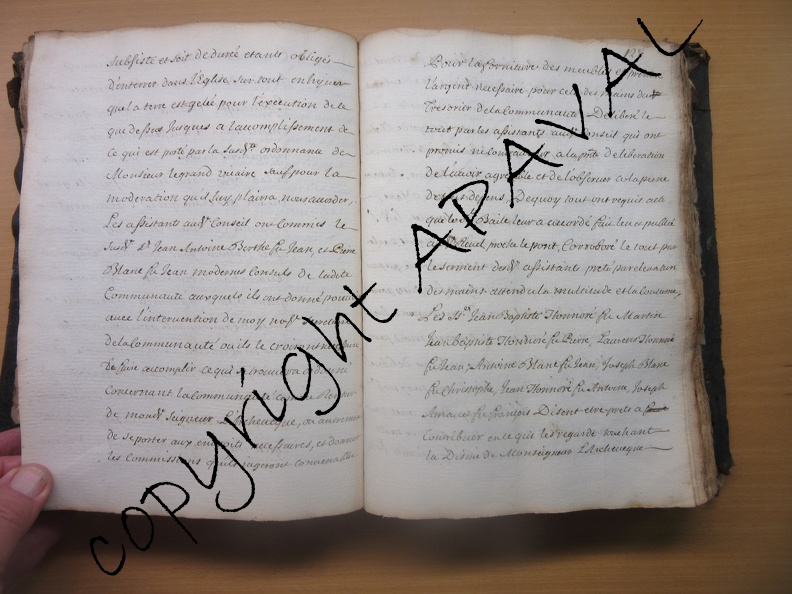 subsiste et soit de durée etants obligés
D'enterrer dans l'Eglise sur tout en hyver
que la terre est gelée pour l'execution de ce
que dessus jusques a l'accomplissement de
ce qui est porté par la susd.e ordonnance de
Monsieur le grand vicaire sauf pour la
moderation qu'il luy plairra nous accorder,
Les assistants aud.t Conseil ont commis le
susd.t S.r Jean Antoine Berthe fu Jean, et Pierre
Blanc fu Jean modernes Consuls de ladite
Communauté auxquels ils ont donné pouvoir
avec l'intervention de moy not.re secretaire
de la Communauté ou ils le croiront
de faire accomplir ce qui se trouvera ordonné
concernant la Communauté
de mond.t Seigneur L'Archeveque, ou autrement
de se porter aux endroits necessaires, et donner
les commissions qu'ils jugeront convenable
Pour la forniture des meubles et prendre
l'argent necessaire pour cela des mains du
Tresorier de la Communauté Deliberé le
tout par les assistants aud.t Conseil qui ont
promis a la p.nte deliberation
de l'avoir agreable et de l'observer a la peine
de tous depens, Dequoy tout ont requis acte
que led.t S.r Baile leur a accordé fait leu et publié
proche le pont, Corroboré le tout par
le serment des d.ts assistants preté par chacun
des mains attendu la multitude et la Coutume,
Les S.rs Jean Baptiste Honnoré fu Martin
Jean Baptiste Honnoré fu Pierre, Laurens Honnoré
fu Jean, Antoine Blanc fu Jean, Joseph Blanc
fu Christophe, Jean Honnoré fu Antoine, Joseph
Arnaud fu François Disent etre prets a
Contribuer en ce qui les regarde touchant
la Dixme de Monseigneur L'Archeveque
copyright APAVAL